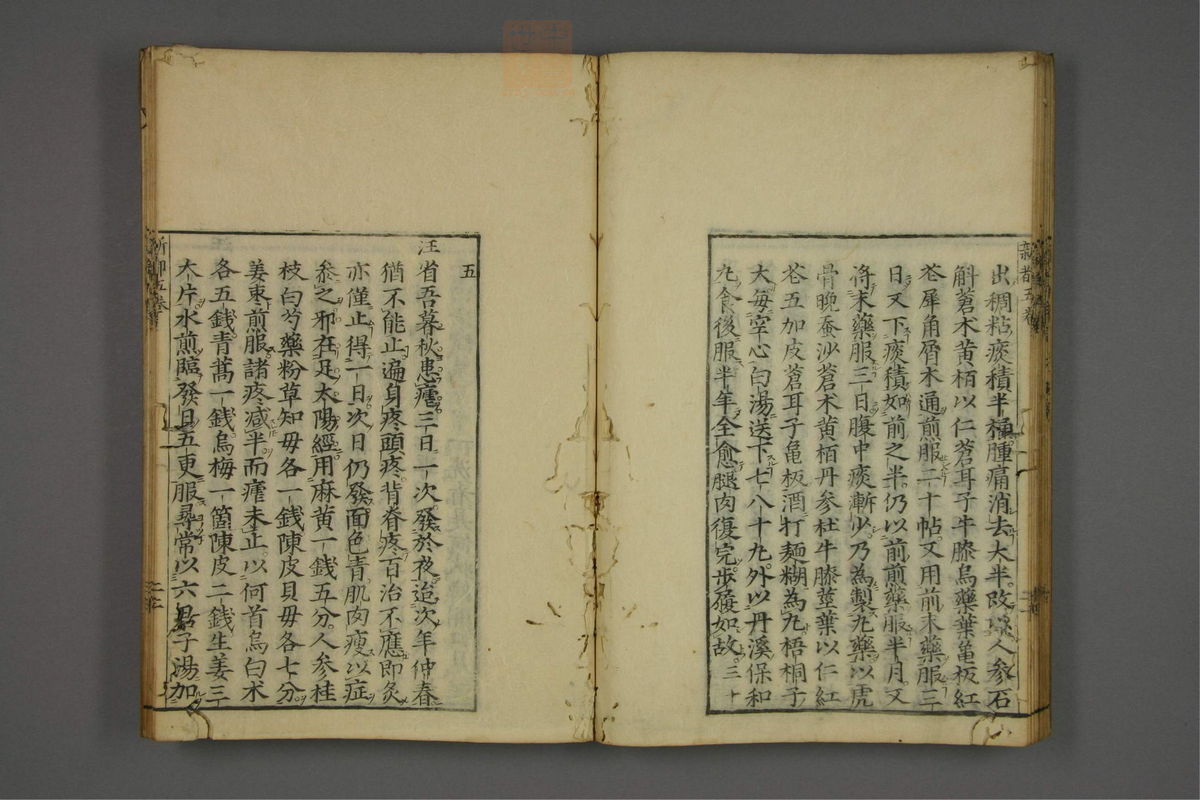 出稠粘痰積半桶腫痛消去大半改以人參石
斛蒼朮黄栢以仁蒼耳子牛膝烏藥葉亀板紅
花犀角屑木通煎服二十帖又用前末藥服三
日又下痰積如前之半仍以前煎藥服半月又
将末藥服三日腹中痰漸少乃為製丸藥以虎
骨晩蚕沙蒼朮黄栢丹参杜牛膝莖葉以仁紅
花五加皮蒼耳子亀板酒打麺糊為丸梧桐子
大毎空心白湯送下七八十丸外以丹溪保和
丸食後服半年全愈腿肉復完步履如故三十
五
汪省吾暮秋患瘧三日一次發於夜迨次年仲春
猶不能止遍身疼頭疼背脊疼百治不應即灸
亦僅止得一日次日仍發面色青肌肉瘦以症
叅之邪在足太陽經用麻黄一錢五分人参桂
枝白芍藥粉草知毋各一錢陳皮貝毋各七分
姜棗煎服諸疼减半而瘧未止以何首烏白术
各五錢青蒿一錢烏梅一箇陳皮二錢生姜三
大片水煎臨發日五更服尋常以六君子湯加